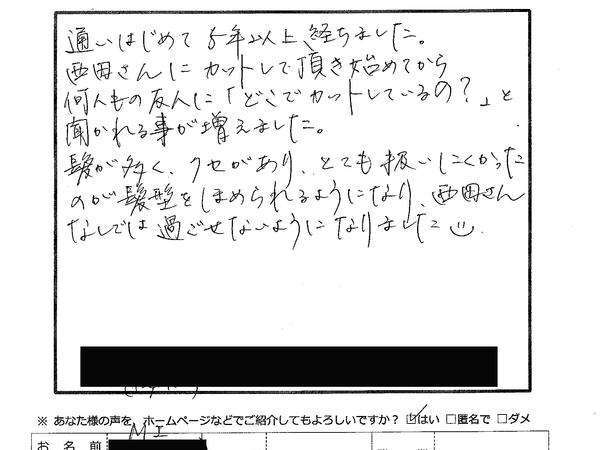 通いはじめて5年以上経ちました。
西田さんにカットして頂き始めてから
何人もの友人に「どこでカットしているの?」と
聞かれる事が増えました。
髪が多く、クセがあり、とても扱いにくかった
のが髪型をほめられるようになり、西田さん
なしでは過ごせないようになりました
※ あなた様の声を、ホームページなどでご紹介してもよろしいですか? ☑はい □匿名で □ダメ
M I
お 名 前